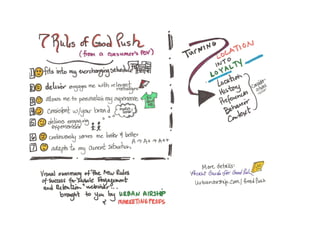 7 Rules of Good Push
(from a consumer's POV)
1 fits into my everchanging schedule
2 deliver engage me with relevant
messages
3 allows me to personalize my experience
4 consistent w/your brand
5 delivers engaging
experiences
6 continuously serves me better & better
A → A+ → A++
7 adapts to my current situation
Visual summary of the New Rules
of Success for Mobile Engagement
and Retention "webinar"...
brought to you by URBAN AIRSHIP
& MARKETINGPROFS
TURNING LOCATION
INTO
LOYALTY
Location
History
Preferences
Behavior
Context
More details:
urbanairship.com/goodpush